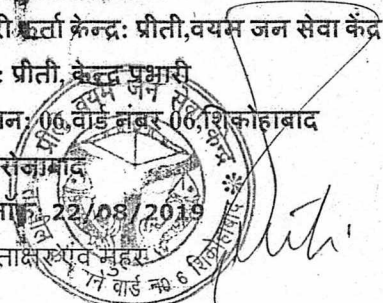 कर्ता केन्द्र: प्रीती,वयम जन सेवा केंद्र
: प्रीती, केन्द्र प्रभारी
06,वार्ड नंबर 06,शिकोहाबाद
22/08/2019
एवं मुहर
प्रीती वयम जन सेवा केन्द्र
वार्ड न० 6 शिकोहाबाद